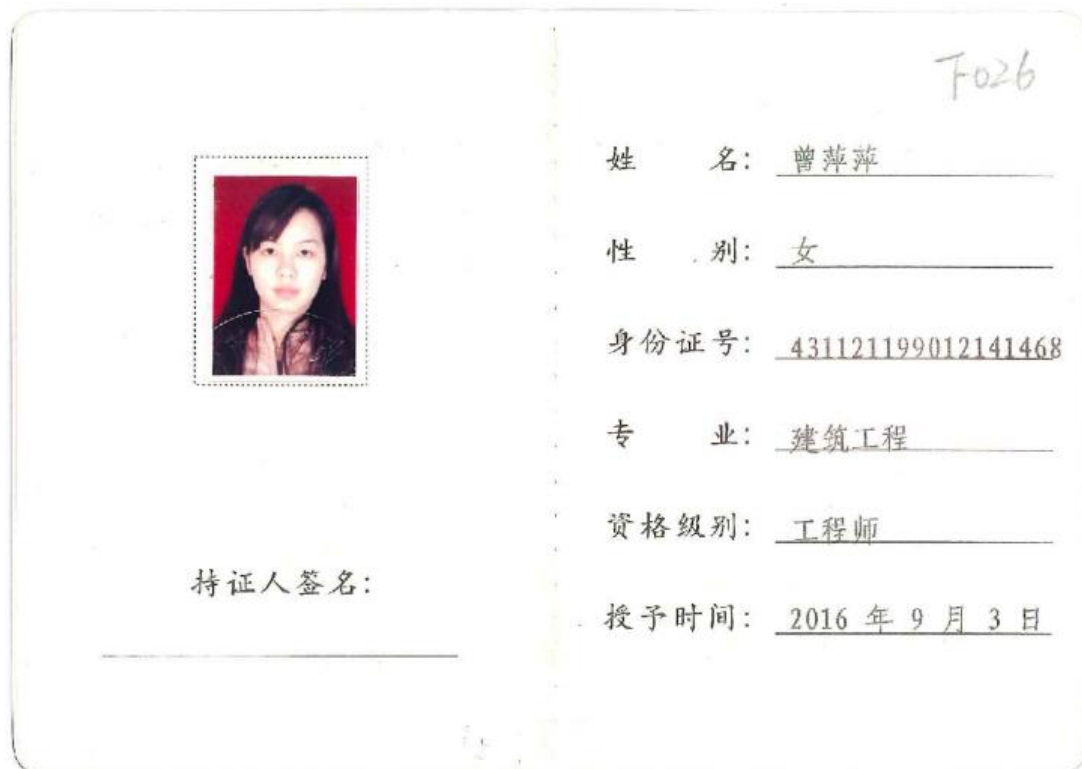 下026
姓 名： 曾萍萍
性 别： 女
身份证号： 431121199012141468
专 业： 建筑工程
资格级别： 工程师
授予时间： 2016 年 9 月 3 日
持证人签名：